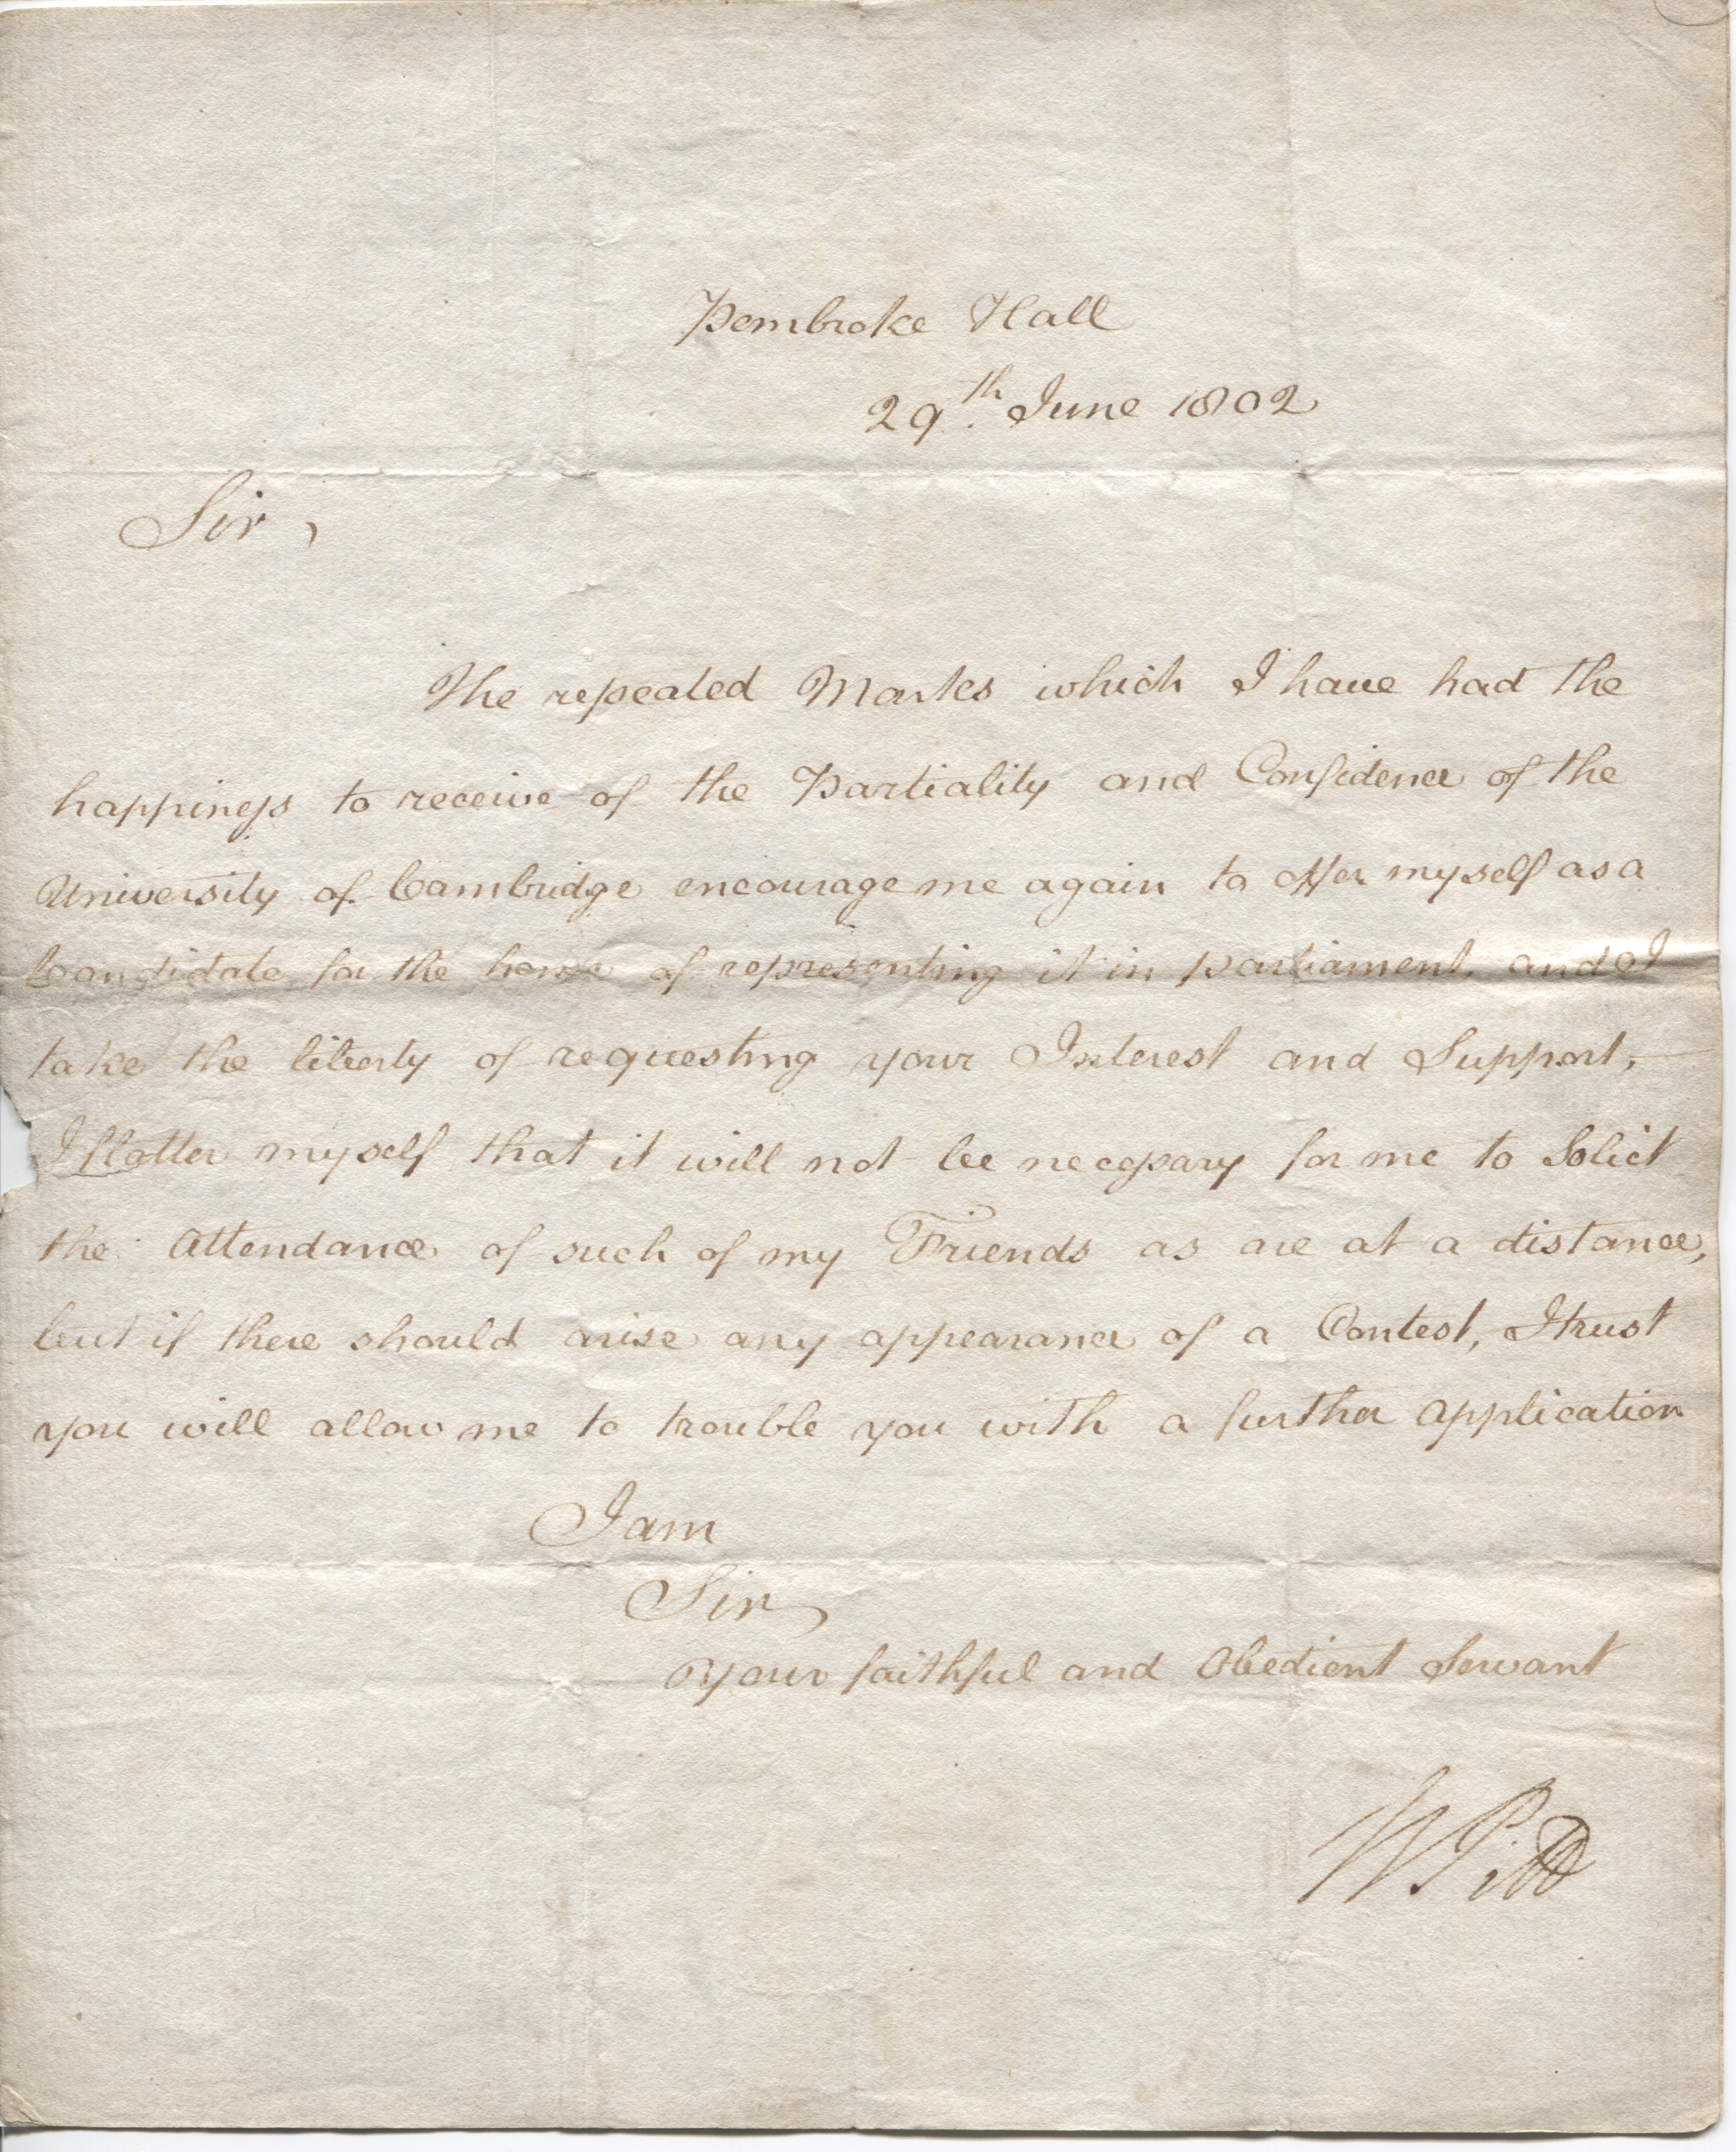 Pembroke Hall
29th. June 1802
Sir,
The repeated Marks which I have had the
happiness to receive of the Partiality and Confidence of the
University of Cambridge encourage me again to offer myself as a
Candidate for the honor of representing it in parliament, and I
take the liberty of requesting your Interest and Support,
I flatter myself that it will not be necessary for me to Solict
the Attendance of such of my Friends as are at a distance,
but if there should arise any appearance of a Contest, I trust
you will allow me to trouble you with a further Application
I am
Sir,
Your faithful and Obedient Servant
W Pitt